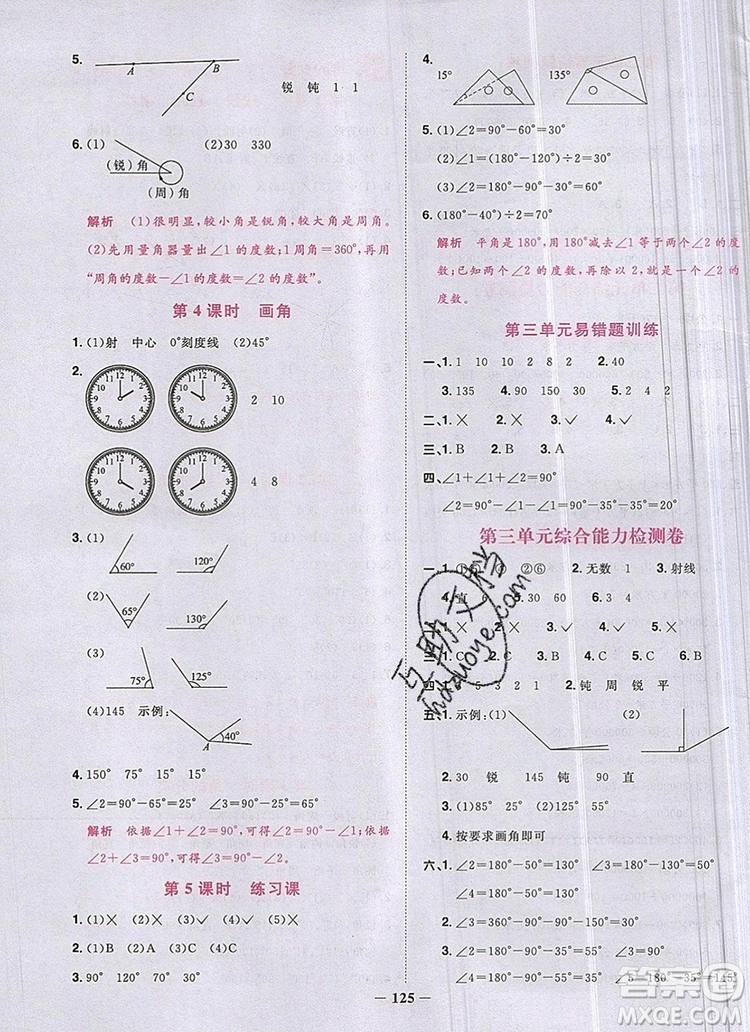 5.
A B
C
锐 钝 1 1
6.(1) (2)30 330
(锐)角
(周)角
解析 (1)很明显,较小角是锐角,较大角是周角。
(2)先用量角器量出∠1的度数;1周角=360°,再用
“周角的度数-∠1的度数=∠2的度数”。
第4课时 画角
1.(1)射 中心 0°刻度线 (2)45°
2.
2 10
4 8
3.(1)
60° 120°
(2)
65° 130°
(3)
75° 125°
(4)145 示例:
A 40°
4.150° 75° 15° 135°
5.∠2=90°-65°=25° ∠2=90°-55°=35°
解析 依据∠1+∠2=90°,可得∠2=90°-∠1;依据
∠2+∠3=90°,可得∠3=90°-∠2。
第5课时 练习课
1.(1)✕ (2)✕ (3)✓ (4)✓ (5)✕
2.(1)B (2)A (3)C (4)C
3.90° 120° 30° 150°
4.
15° 135°
5.(1)∠2=90°-60°=30°
(2)∠1=(180°-120°)÷2=30°
(3)∠2=(180°-90°)÷2=45°
6.(180°-40°)÷2=70°
解析 平角是180°,用180°减去∠1等于两个∠2的度
数;已知两个∠2的度数,再除以2就可以求出一个∠2的
度数。
第三单元易错题训练
一、1. 1 10 10 2 8 2 2. 40
3. 135 4. 90 150 30 5. 120
二、1.✕ 2.✕ 3.✕ 4.✓ 5.✓
三、1.B 2.B 3.A
四、∠1+∠1+∠2=90°
∠2=90°-∠1-∠1=90°-35°-35°=20°
第三单元综合能力检测卷
一、1.①⑤ ④ ②⑥ 2.无数 1 3.射线
4.直 6 5.30 60 6.55
二、1.✕ 2.✕ 3.✕ 4.✓ 5.✓
三、1.C 2.C 3.B 4.B 5.A
5 3 2 1 2.钝 周 锐 平
五、1.示例:(1) (2)
2. 30 锐 145 钝 90 直
3.(1)85° (2)125° (2)55°
4.按要求画角即可
六、1.∠2=180°-50°=130° ∠3=180°-130°=50°
∠4=180°-50°=130°
2.∠3=360°-90°-90°-50°=130°
3.∠2=180°-90°-55°=35° ∠3=90°-35°=55°
∠4=180°-35°=145° ∠5=180°-35°=145°
125
答案圈
MXQE.COM
haoduoye.com